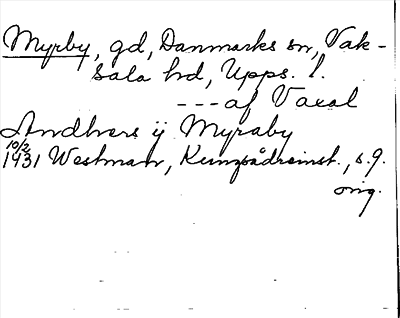 Myrby, gd, Danmarks sn, Vak-
sala hd, Upps. l.
--- af Vaxal
Andhers ij Myraby
10/2
1431 Westman, Kungsådreinst., s. 9.
orig.